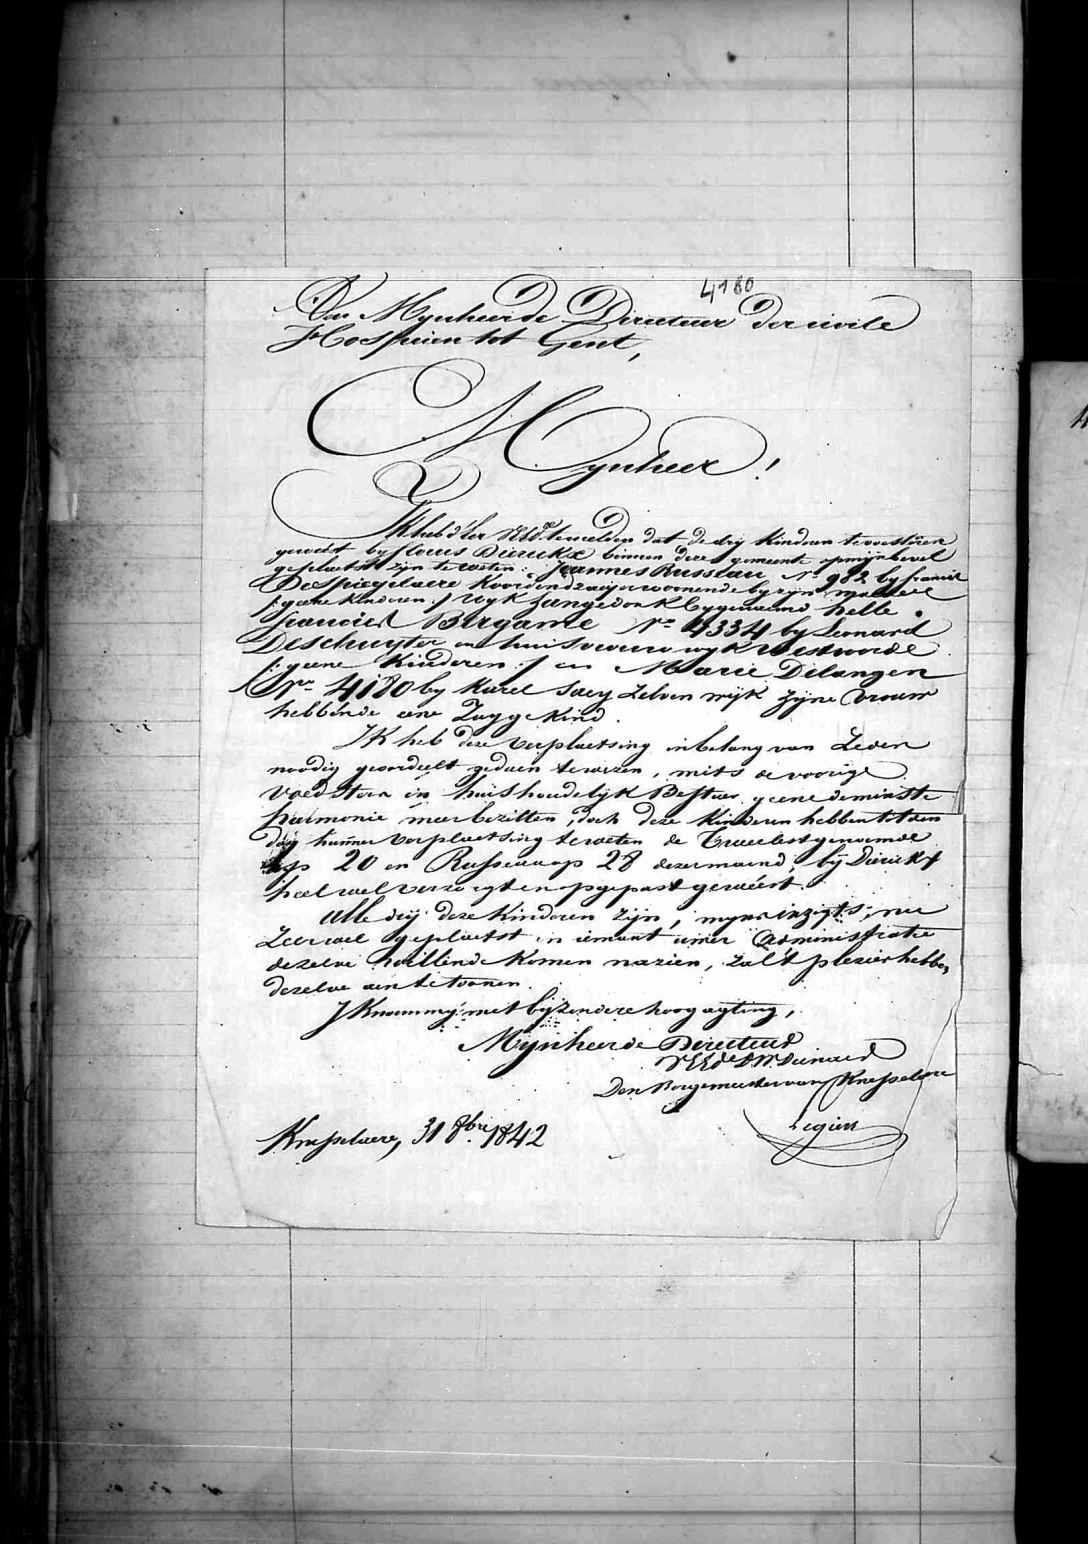 4180
Den Mynheer de Directeur der civile
Hospicien tot Gent,
Mynheer!
Ik heb d'eer UEde. te melden dat de dry kinderen te voorstijren
geweest by flouis Dierickx binnen deze gemeente op mijn bevel
geplaetst zijn te weten: Joannes Russeau No 982 by francis
DeSpiegelaere koordendraeijer woonende by zijn moeder
/: geene kinderen :/ wyk bygenaemd helle.
Francies Bergame No 4334 by Leonard
Deschuyter en huisvrouw wyk Westvoorde
/: geene kinderen :/ en Marie Delangen
No 4180 by Karel Saey Zelven wijk zyne vrouw
hebbende eene Zuyge kind.
Ik heb deze verplaetsing in belang van Zeden
noodig geoordeelt gedaen te wezen, mits de voorige
Voedsters in huishoudelyk Bestuer geene de minste
harmonie meer bezitten, doch deze kinderen hebben tot den
dag hunner verplaetsing te weten de Twee lest genoemde
op 20 en Russeau op 28 dezer maend, by Dierickx
heel wel verzorgt en opgepast geweest.
Alle dry deze kinderen zijn, myns inzigts, nu
Zeer wel geplaetst en iemant uwer Administratie
dezelve willende komen nazien, zal 't plezier hebben
dezelve aen te toonen.
Ik noem my met byzondere hoog agting,
Mijnheer de Directeur
UEde DW Dienaer
Den Borgemeester van Knesselaere
Knesselaere, 31 8bre 1842